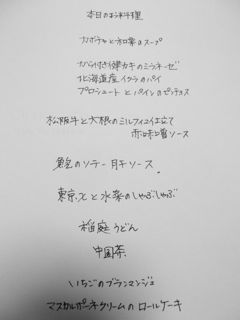 本日のお料理
カボチャと和栗のスープ
カラ付き健カキのミラネーゼ
北海道産イクラのパイ
プロシュートとパインのピンチョス
松阪牛と大根のミルフィユ仕立て
赤味噌ソース
鮑のソテー 肝ソース
東京Xと水菜のしゃぶしゃぶ
稲庭うどん
中国茶
いちごのブランマンジェ
マスカルポーネクリームのロールケーキ